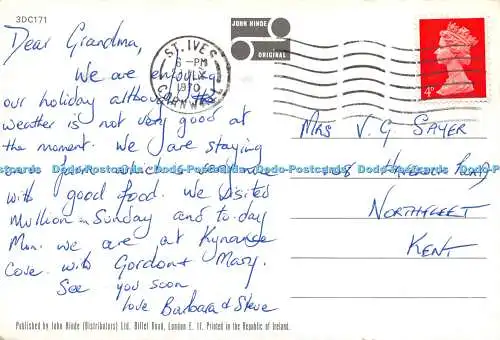 3DC171
JOHN HINDE
ORIGINAL
ST. IVES
6 - PM
1970
CORNWALL
4D
Dear Grandma,
We are enjoying
our holiday although the
weather is not very good at
the moment. We are staying
with good food. We visited
Mullion on Sunday and to-day
Mon. we are at Kynance
Cove. with Gordon & Mary.
See you soon
love Barbara & Steve
MRS V. G SAYER
NORTHFLEET
KENT
Dodo-Postcards.com Dodo-Postcards.com Dodo-Postcards.com Dodo-Postcards.com
Published by John Hinde (Distributors) Ltd. Billet Road, London E. 17. Printed in the Republic of Ireland.